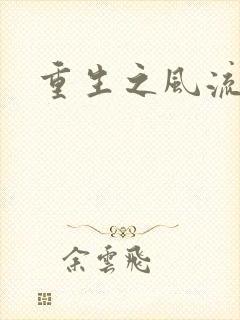 重生之風流
余雲飛